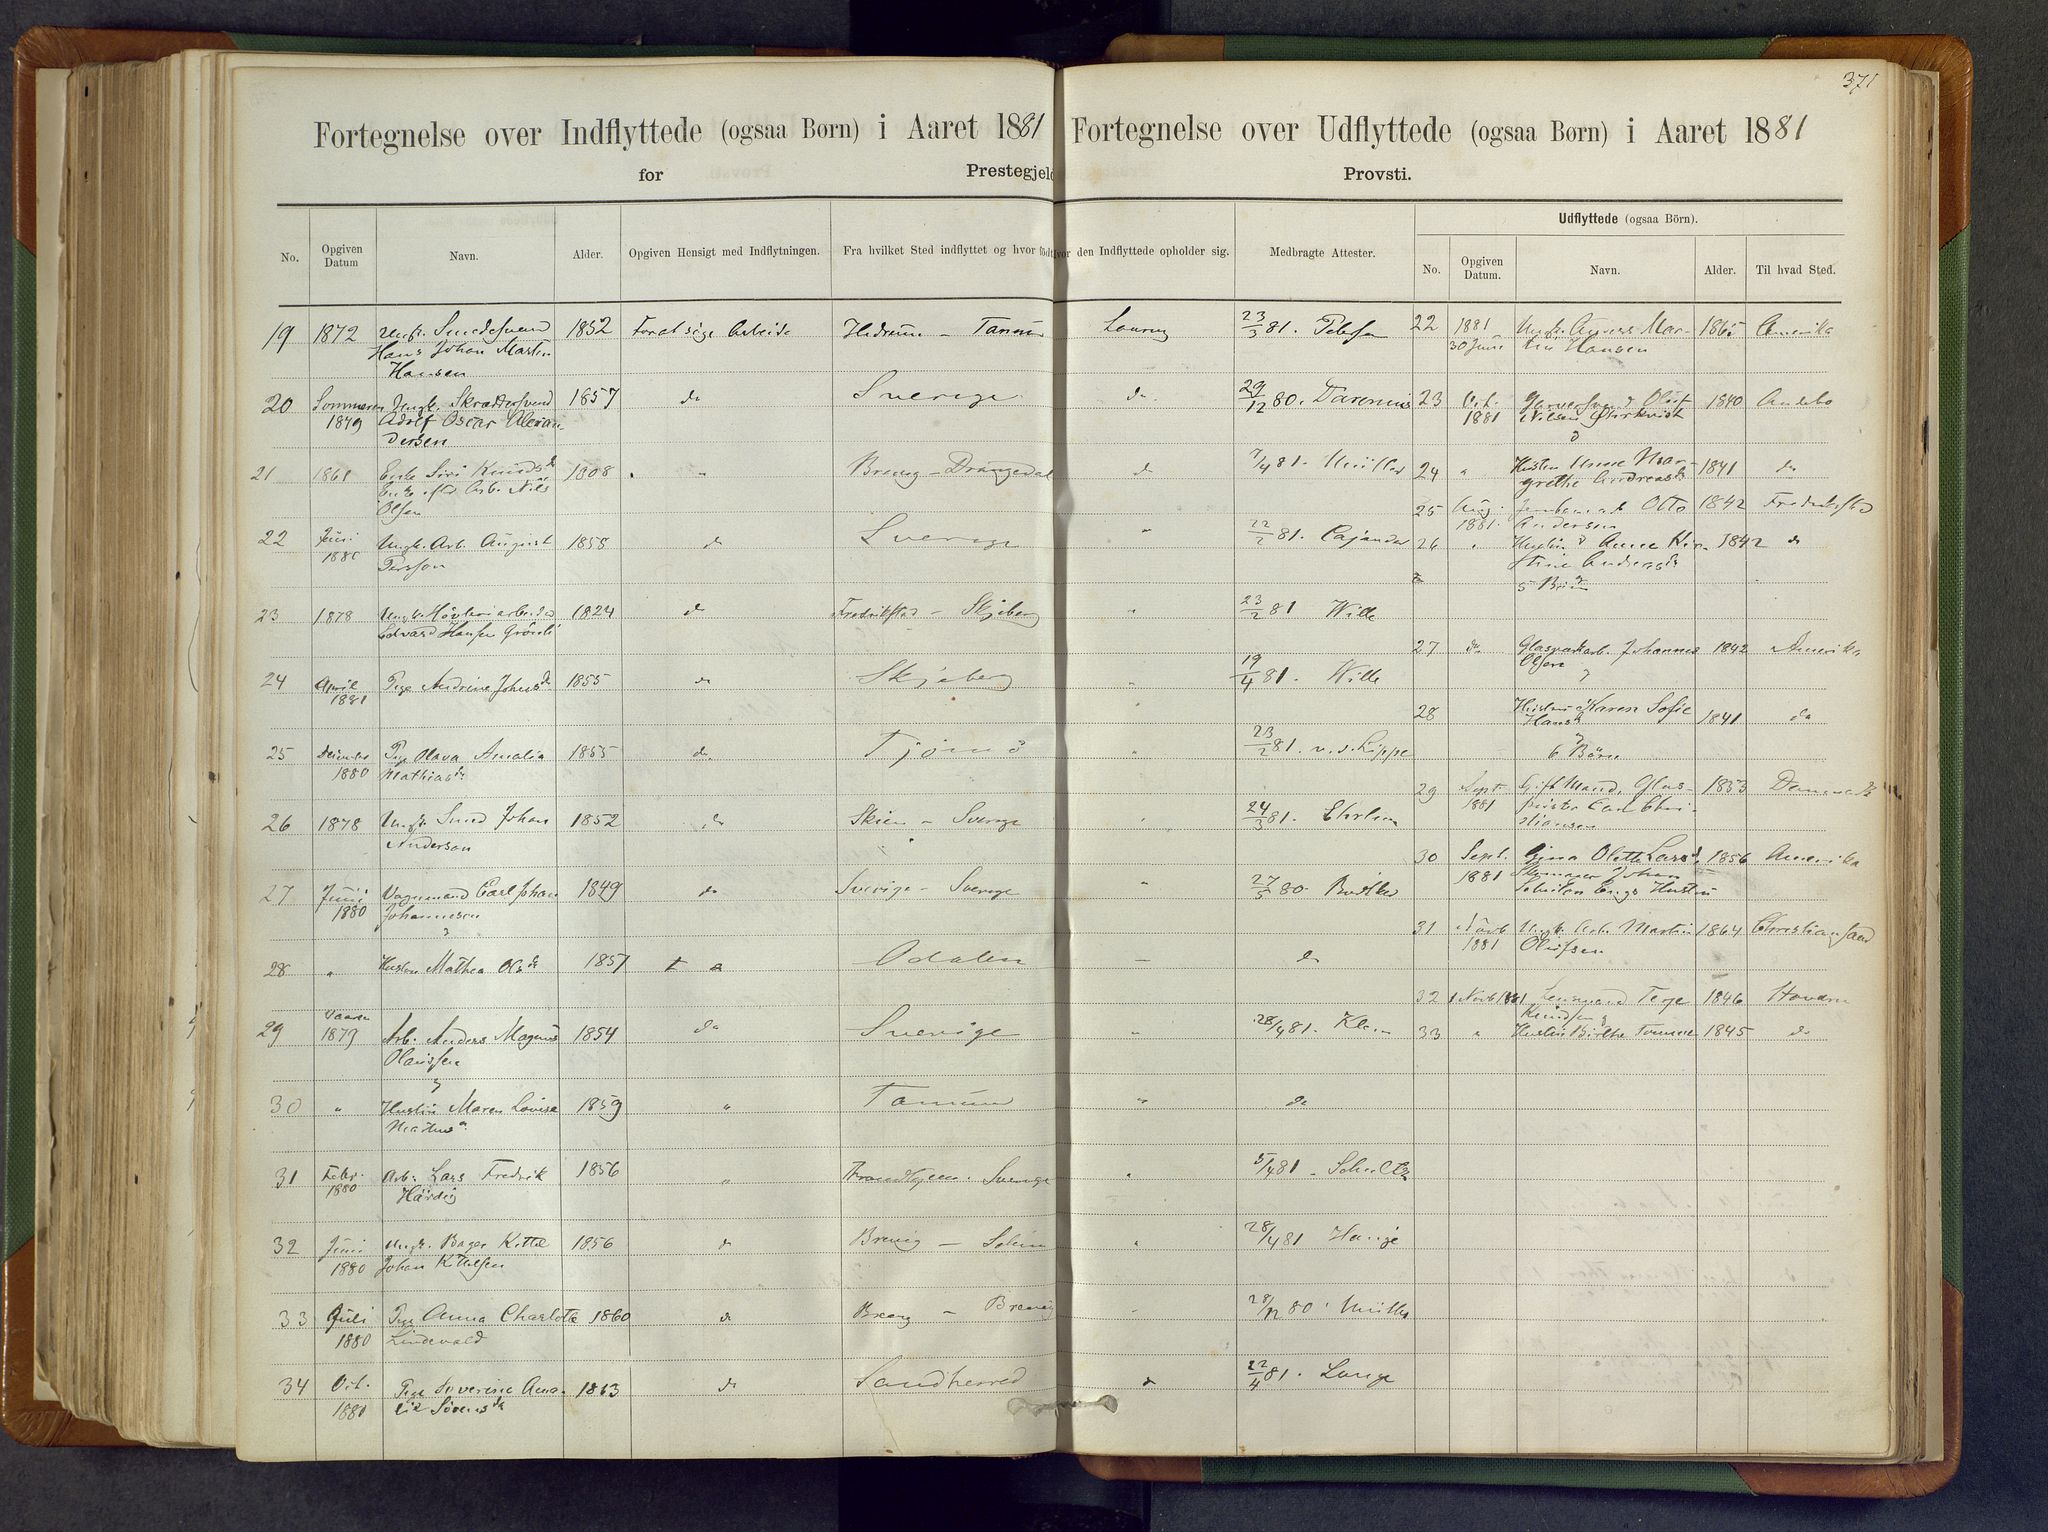 371
Fortegnelse over Indflyttede (ogsaa Børn) i Aaret 1881
for Prestegjeld
No. Opgiven Datum Navn. Alder. Opgiven Hensigt med Indflytningen. Fra hvilket Sted indflyttet og hvor født
hvor den Indflyttede opholder sig. Medbragte Attester.
19 1872 Ungk. Smedesvend 1852 For at søge Arbeide Hedrum – Tanum Laurvig 23/3 81. Petersen
Hans Johan Martin
Hansen
20 Sommeren Ungk. Skræddersvend 1857 do Sverige do 29/12 80.
1879 Adolf Oscar Alexan-
dersen
21 1861 Enke Siri Knudsd 1808 " Brevig – Drangedal do 7/4 81. Müller
Enke Arb. Nils
Olsen
22 Juni Ungk. Arb. August 1858 do Sverige " 22/2 81. Cajander
Persson
23 1878 Ungk. 1824 do Fredrikstad – Skjeberg " 23/2 81 Wille
Edvard Hansen
24 April Pige Andrine Johnsd 1855 do Skjeberg " 19/4 81. Wille
1881
25 Pige Olava Amalia 1855 do Tjømø " 23/2 81. v. d. Lippe
1880 Mathiasd
26 1878 Ungk. Smed Johan 1852 do Skien – Sverige " 24/3 81.
Anderson
27 Juni Vognmand Carl Johan 1849 do Sverige – Sverige " 27/5 80.
1880 Johannesen
28 " Hustru Mathea Olsd 1857 Odalen – do
29 Vaaren Arb. Anders Magnus 1854 do Sverige " 28/4 81.
1879 Olaussen
30 " Hustru Maren Lovise 1859 " Tanum " do
31 Febr. Arb. Lars Fredrik 1856 " Trondhjem. Sverige " 5/4 81.
1880 Härdig
32 Juni Ungk. Bager Kittil 1856 do Brevig – " 28/4 81
1880 Johan Kittilsen
33 Juli Pige Anna Charlotte 1860 do Brevig – Brevig 28/12 80. Müller
1880 Lindevald
34 Oct. Pige Severine Ama- 1863 do Sandherred do 22/4 81. Lange
1880 lie Sørensd
Fortegnelse over Udflyttede (ogsaa Børn) i Aaret 1881
Provsti.
Udflyttede (ogsaa Börn).
No. Opgiven Datum. Navn. Alder. Til hvad Sted.
22 1881 Ungk. Anders Mar- Amerika
30 Juni tin Hansen
23 Oct. Garversvend Olof 1840 Andebo
1881 Nilsen
24 " Hustru Anne Mar- 1841 do
grethe Andreasd
25 Aug. Otto 1842 Fredrikstad
1881. Andersen
26 " Hustru Anne Kir- 1842 do
stine Andersd
5 Børn
27 do Glasværkarb. Johannes 1842 Amerika
Olsen
28 Hustru Karen Sofie 1841 do
Hansd
6 Børn
29 Sept. Gift Mand, Glas- 1853 Danmark
1881 puster Carl Chri-
stiansen
30 Sept. Gina Olette Larsd, 1856 Amerika
1881 Skomager Johan
Hustru
31 Novb Ungk. Arb. Martin 1864 Christiansand
1881 Olufsen
32 1 Novb 1881 Lensmand Terje 1846
Knudsen
33 " Hustru Birthe 1845 do